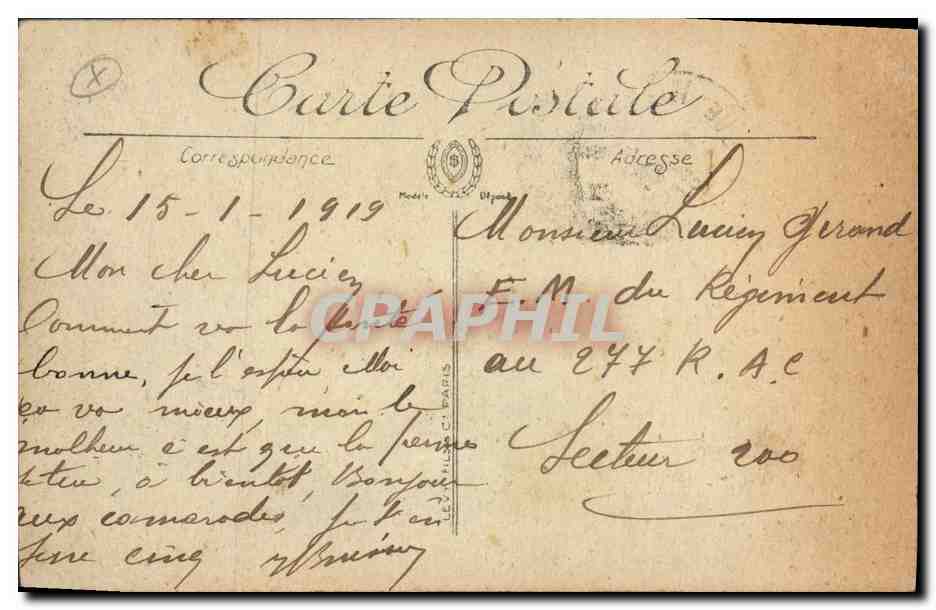 Carte Postale
Correspondance
Adresse
Modèle Déposé
Le 15-1-1919
Mon cher Lucien
Comment va la santé
bonne, je l'espère Moi
ça va mieux, mais le
malheur c'est que la
à bientôt, Bonjour
aux camarades, je t'en
serre cinq
LEVY FILS & Cie PARIS
Monsieur Lucien Girand
E.M. du Régiment
au 277 R.A.C
Secteur 200
CPAPHIL